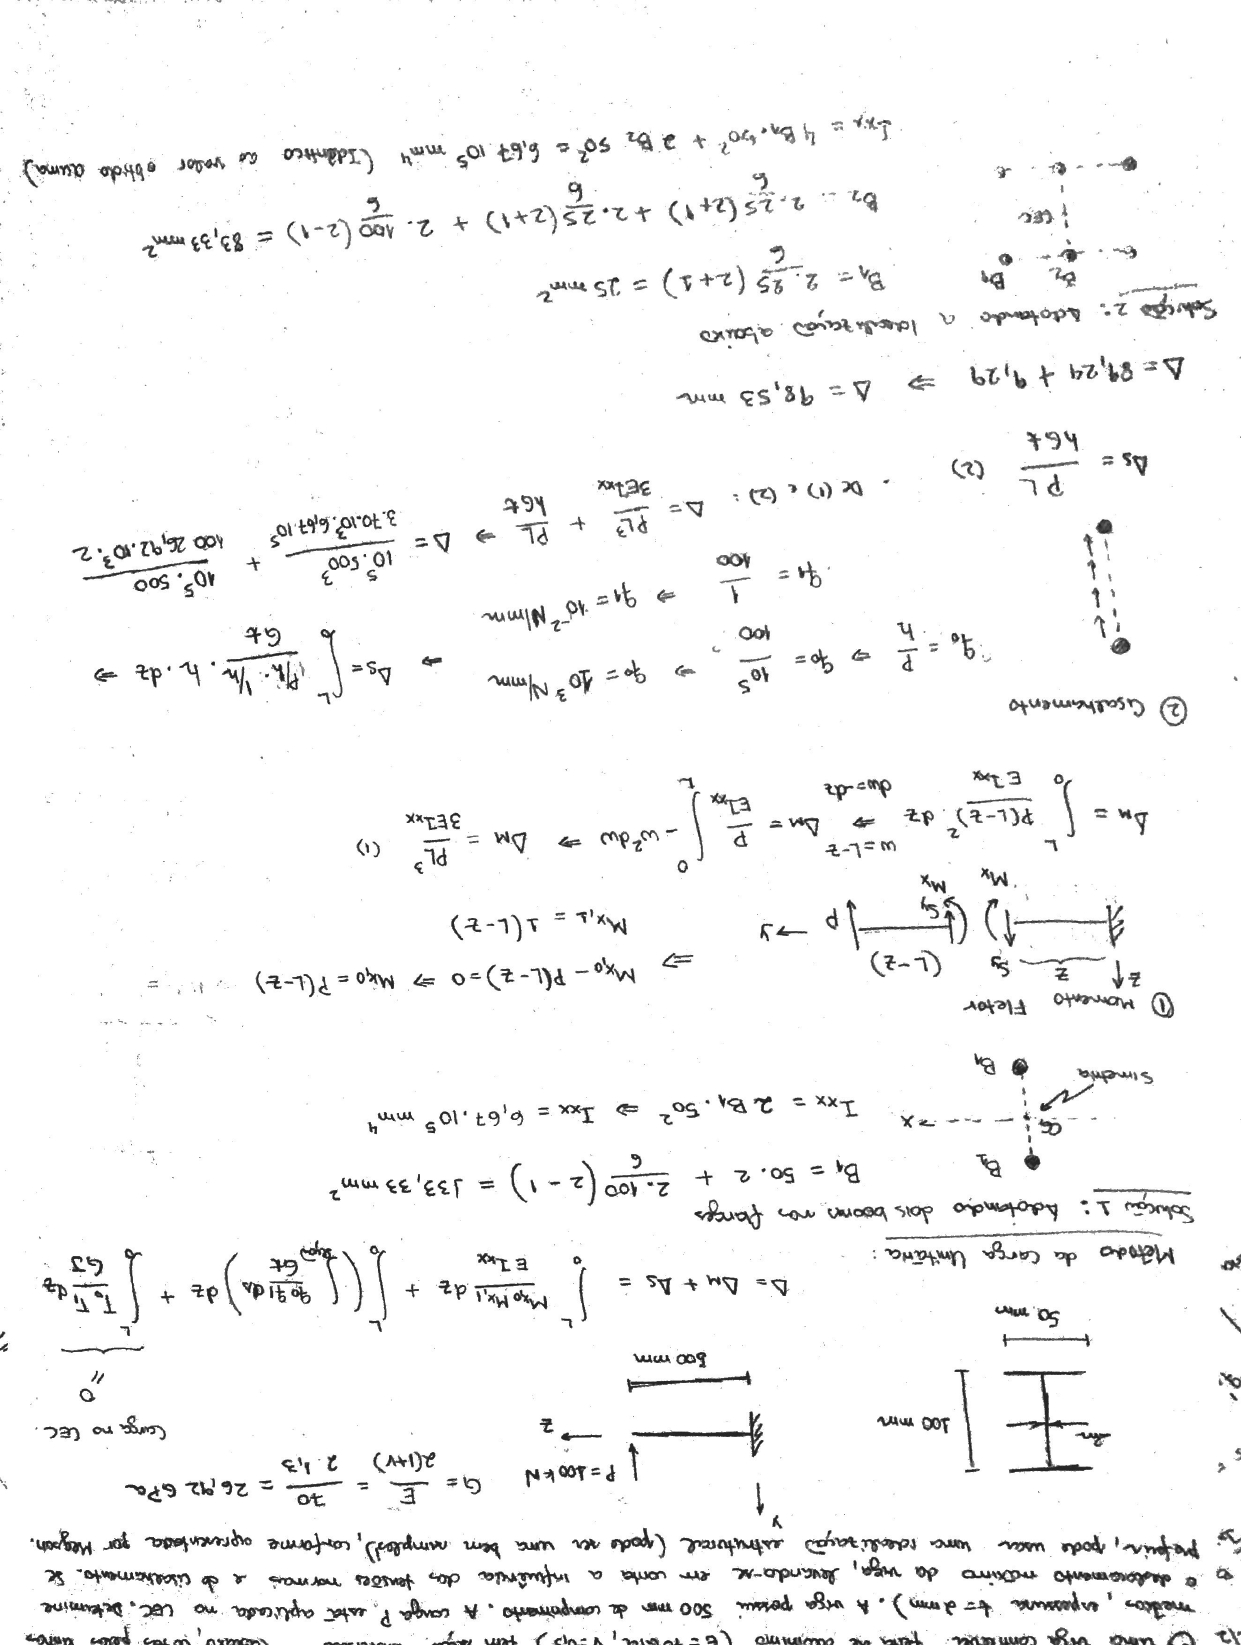 uma viga cantilever feita de alumínio (E = 70 GPa, ν = 0,3) tem seção pelas linhas
médias, espessura t = 2 mm). A viga possui 500 mm de comprimento. A carga P está aplicada no CEC. Determine
o deslocamento máximo da viga, levando-se em conta a influência das tensões normais e de cisalhamento. Se
preferir, pode usar uma idealização estrutural (pode ser uma bem simples!), conforme apresentada por Megson.
100 mm
50 mm
y
P = 100 kN
z
500 mm
G = E/2(1+ν) = 70/2.1,3 = 26,92 GPa
Carga no CEC.
0
Δ = ΔM + ΔS = ∫₀ᴸ Mx,0 Mx,1/E Ixx dz + ∫₀ᴸ (∫seção q0 q1 ds/Gt) dz + ∫₀ᴸ T0 T1/GJ dz
Método da Carga Unitária:
Solução 1: Adotando dois booms nas flanges
B1
CG
x
Simetria
B1
B1 = 50.2 + 2.100/6 (2 - 1) = 133,33 mm²
Ixx = 2 B1 . 50² ⇒ Ixx = 6,67.10⁵ mm⁴
① Momento Fletor
z
z
Sy
(L-z)
y
P
Sy
Mx
Mx
⇒ Mx,0 - P(L-z) = 0 ⇒ Mx,0 = P(L-z)
Mx,1 = 1(L-z)
ΔM = ∫₀ᴸ P(L-z)²/E Ixx dz
w = L-z
⇒
dw = -dz
ΔM = P/EIxx ∫_L⁰ - w² dw ⇒ ΔM = PL³/3EIxx (1)
② Cisalhamento
q0 = P/h ⇒ q0 = 10⁵/100 ⇒ q0 = 10³ N/mm
q1 = 1/100 ⇒ q1 = 10⁻² N/mm
⇒ ΔS = ∫₀ᴸ P/h . 1/h/Gt . h . dz ⇒
ΔS = PL/hGt (2)
. De (1) e (2): Δ = PL³/3EIxx + PL/hGt ⇒ Δ = 10⁵.500³/3.70.10³.6,67.10⁵ + 10⁵.500/100 26,92.10³.2
Δ = 89,24 + 9,29 ⇒ Δ = 98,53 mm
Solução 2: Adotando a idealização abaixo
B2
B1
CEC
B1 = 2.25/6 (2+1) = 25 mm²
B2 = 2.25/6 (2+1) + 2.25/6 (2+1) + 2.100/6 (2-1) = 83,33 mm²
Ixx = 4 B1.50² + 2 B2 50² = 6,67 10⁵ mm⁴ (Idêntico ao valor obtido acima)